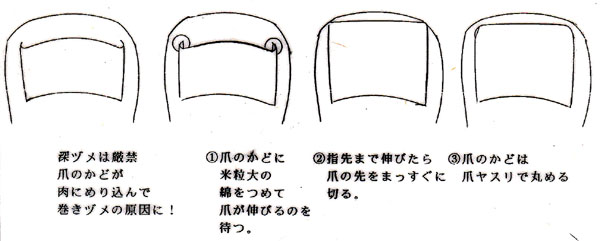 深ヅメは厳禁
爪のかどが
肉にめり込んで
巻きヅメの原因に！
①爪のかどに
米粒大の
綿をつめて
爪が伸びるのを
待つ。
②指先まで伸びたら
爪の先をまっすぐに
切る。
③爪のかどは
爪ヤスリで丸める